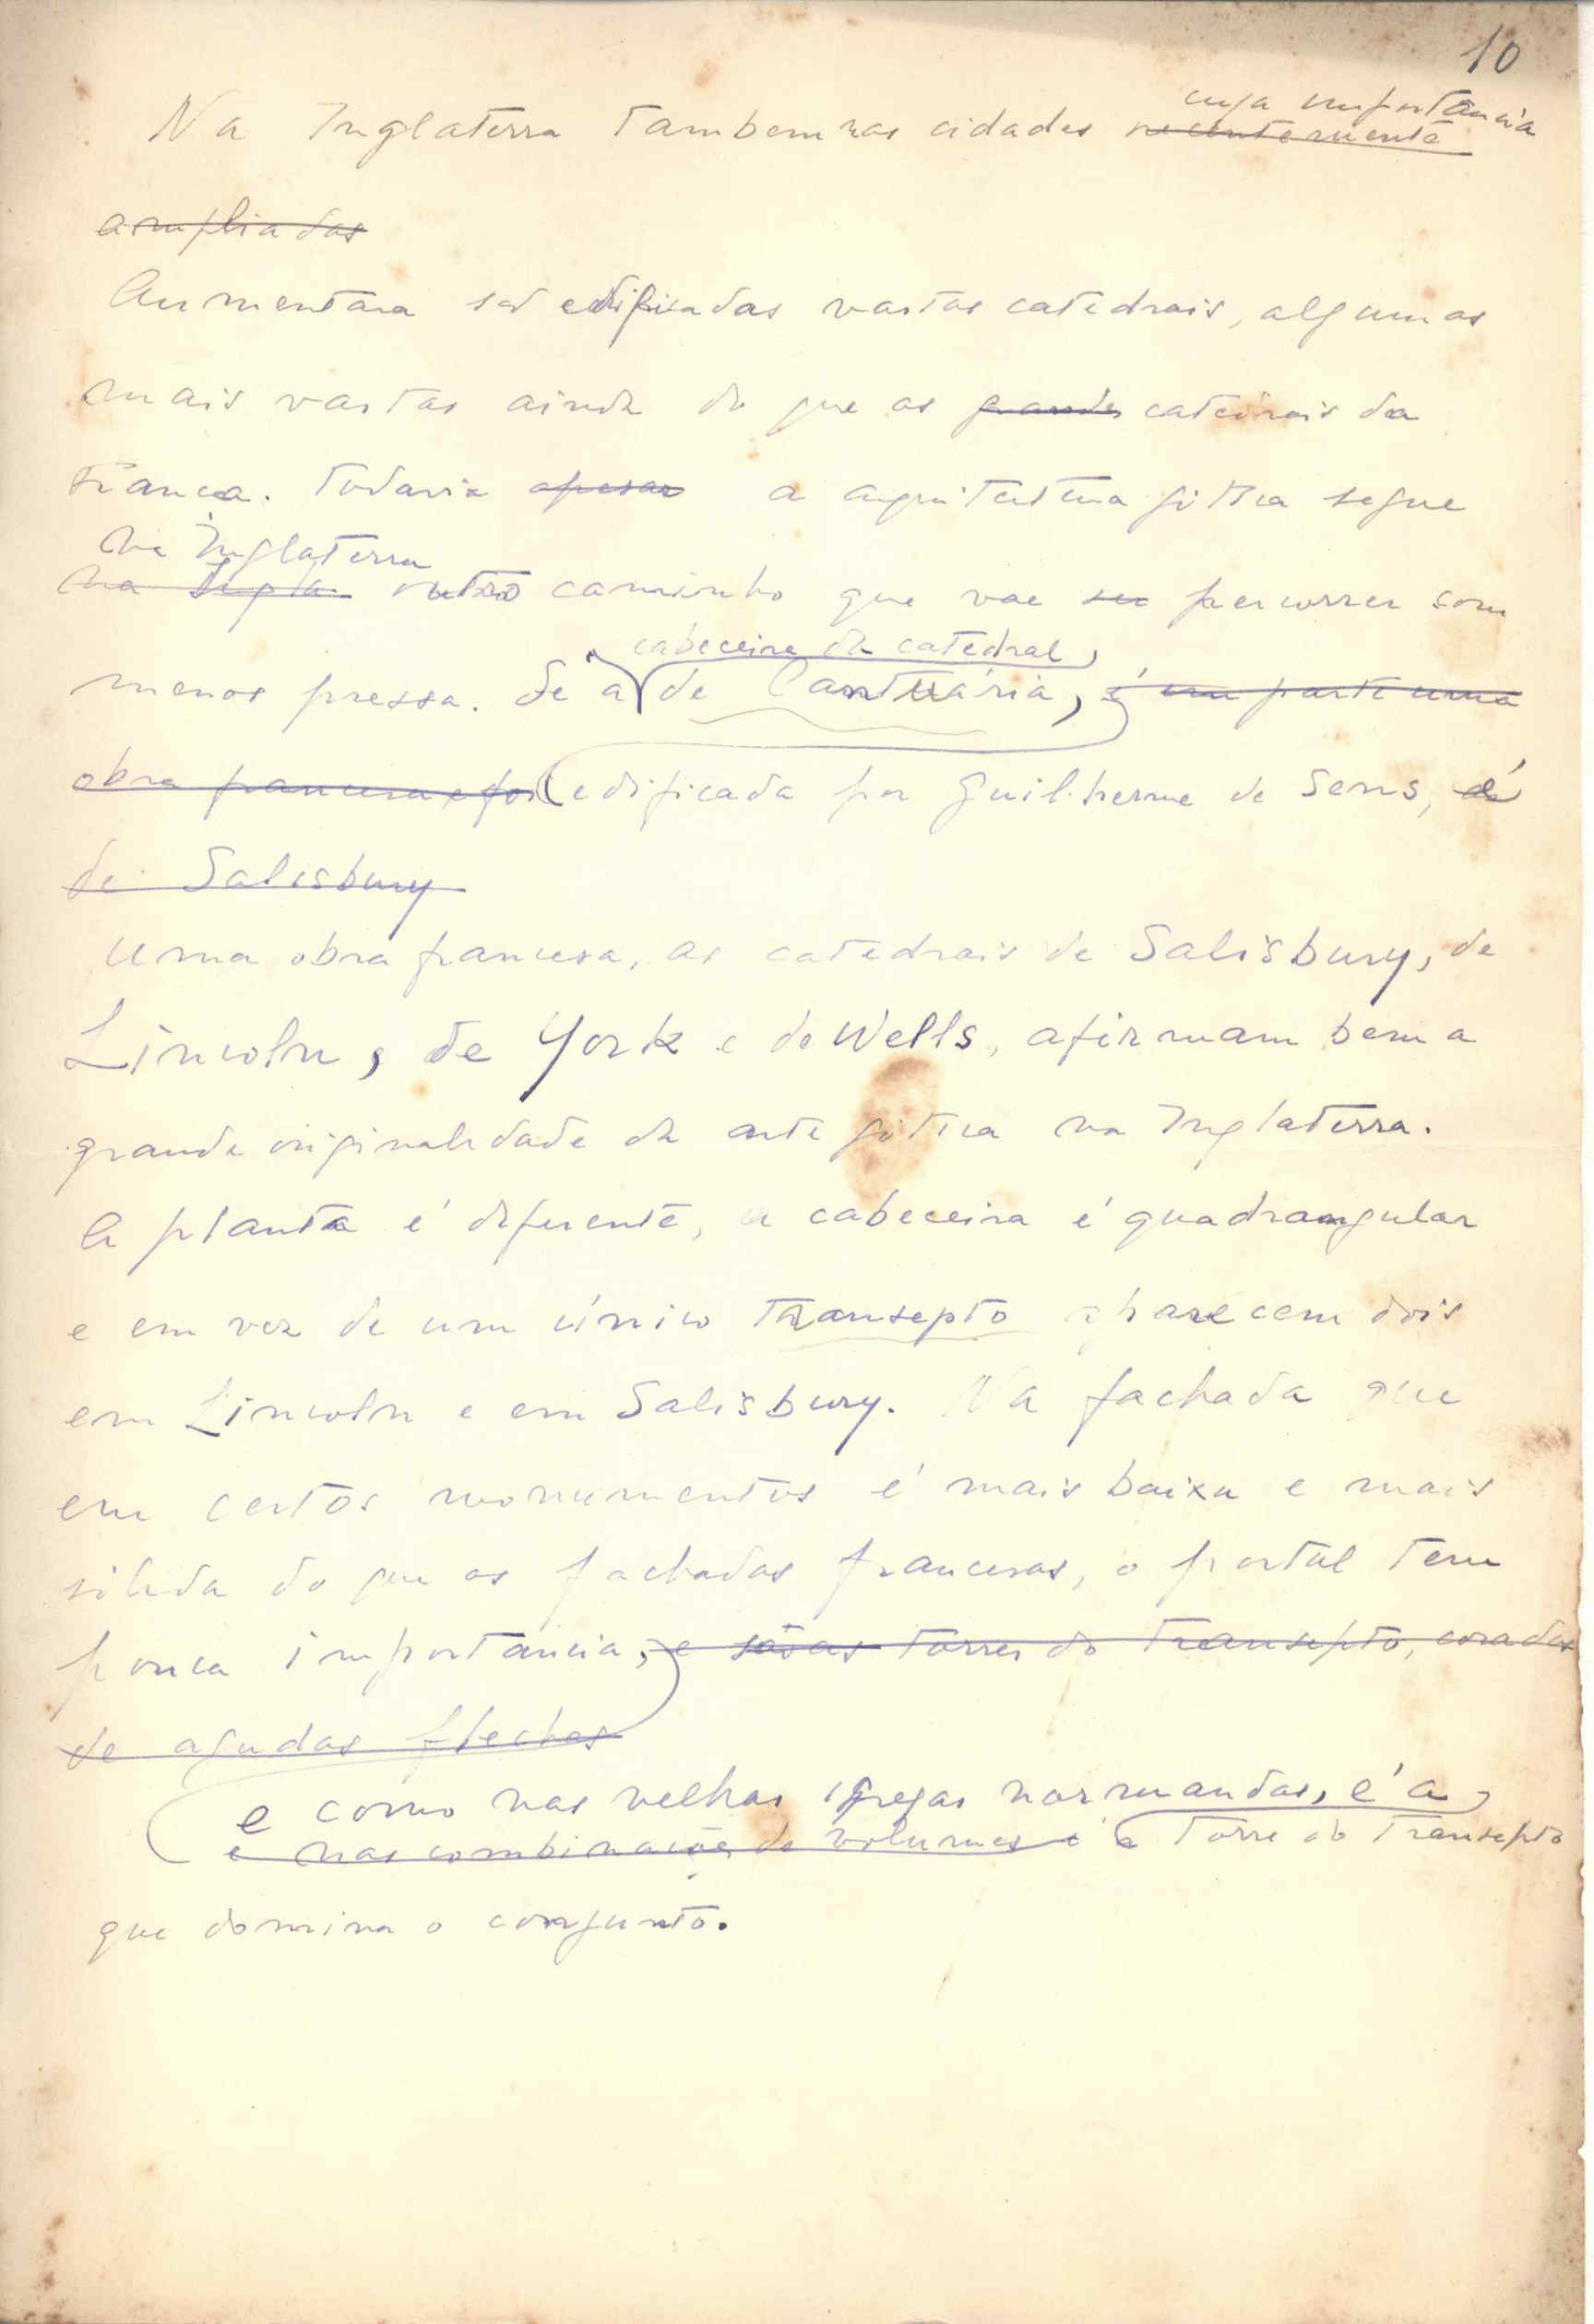 10
cuja importância
Na Inglaterra tambem nas cidades recentemente
ampliadas
Aumentara são edificadas vastas catedrais, algumas
mais vastas ainda do que as grandes catedrais da
França. Todavia apesar a arquitectura gótica segue
na Inglaterra
na Ingla outro caminho que vae percorrer com
cabeceira da catedral,
menos pressa. Se a de Cantuária, é em parte uma
obra francesa e foi edificada por Guilherme de Sens, é
de Salisbury
uma obra francesa, as catedrais de Salisbury, de
Lincoln, de York e de Wells, afirmam bem a
grande originalidade da arte gótica na Inglaterra.
A planta é diferente, a cabeceira é quadrangular
e em vez de um único transepto aparecem dois
em Lincoln e em Salisbury. Na fachada que
em certos monumentos é mais baixa e mais
sólida do que as fachadas francesas, o portal tem
pouca importancia, e são as torres do transepto, coroadas
de agudas flechas
e como nas velhas igrejas normandas, é a
e nas combinações de volumes é a torre do transepto
que domina o conjunto.